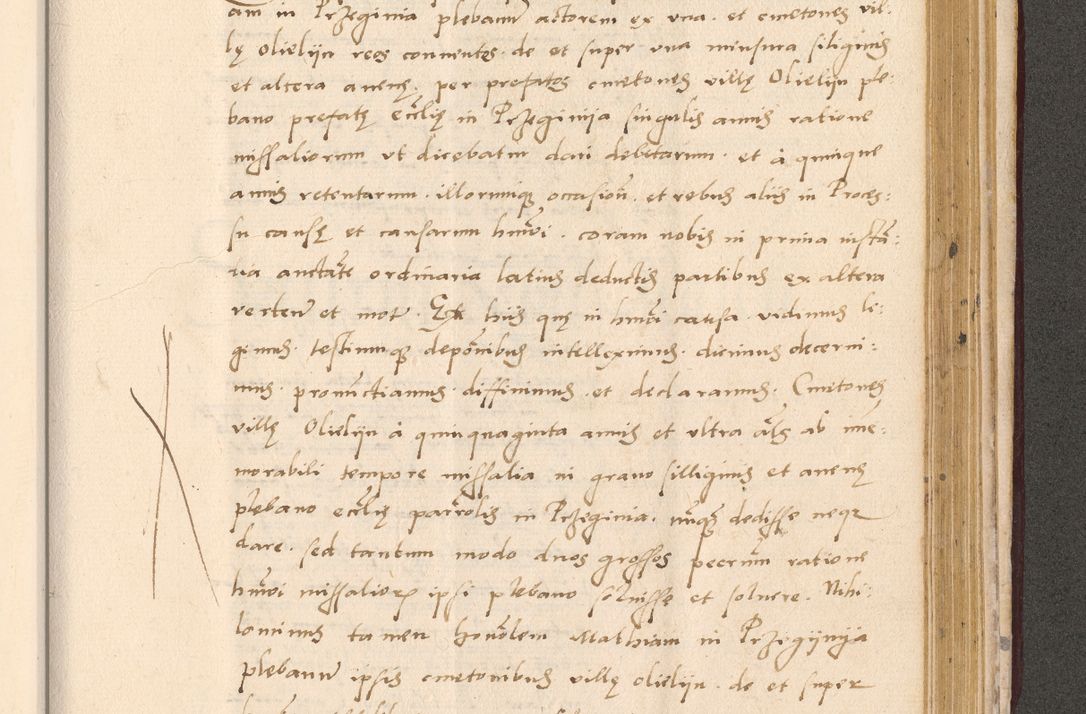 am in Przeginia plebanũ actorem ex vna · et cmetones vil:
lę Olielyn reos conuentos · de et super vna mensura siliginis
et altera auenę · per prefatos cmetones villę Olielyn ple:
bano prefatę eccl̃ię in Przeginija singulis annis ratione
missaliorum vt dicebatur dari debitarum · et à quinque
annis retentarum · illorumque occasioñ · et rebus aliis in Proces:
su causę et causarum hm̃oi · coram nobis in prima instã:
tia auctãte ordinaria latius deductis partibus ex altera
verteñ et motis · Ex hiis quę in hm̃oi causa · vidimus le:
gimus · testiumque depõnibus intelleximus · dicimus decerni:
mus · pronũctiamus · diffinimus · et declaramus · Cmetones
villę Olielyn à quinquaginta annis et vltra ãls ab ime:
morabili tempore missalia in grano silliginis et auenę
plebano eccl̃ię parrõlis in Przeginia · nũqȝ dedisse neqȝ
dare · sed tantum modo duos grossos peccũm ratione
hm̃oi missaliorȝ ipsi plebano sõluisse et soluere · Nihi:
lominus tamen honõlem Mathiam in Przegynija
plebanũ ipsis cmetonibus villę olielyn · de et super